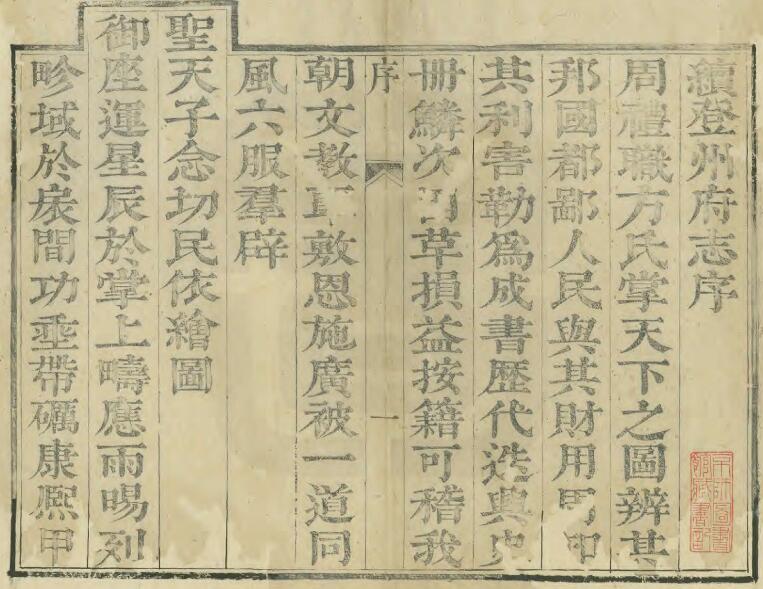 續登州府志序
周禮職方氏掌天下之圖辨其
邦國都鄙人民與其財用
其利害勒爲成書歷代迭興史
冊鱗次草損益按籍可稽我
序 一
朝文教敷恩施廣被一道同
風六服羣辟
聖天子念切民依繪圖
御座運星辰於掌上疇應雨暘列
畛域於扆間功垂帶礪康熙甲